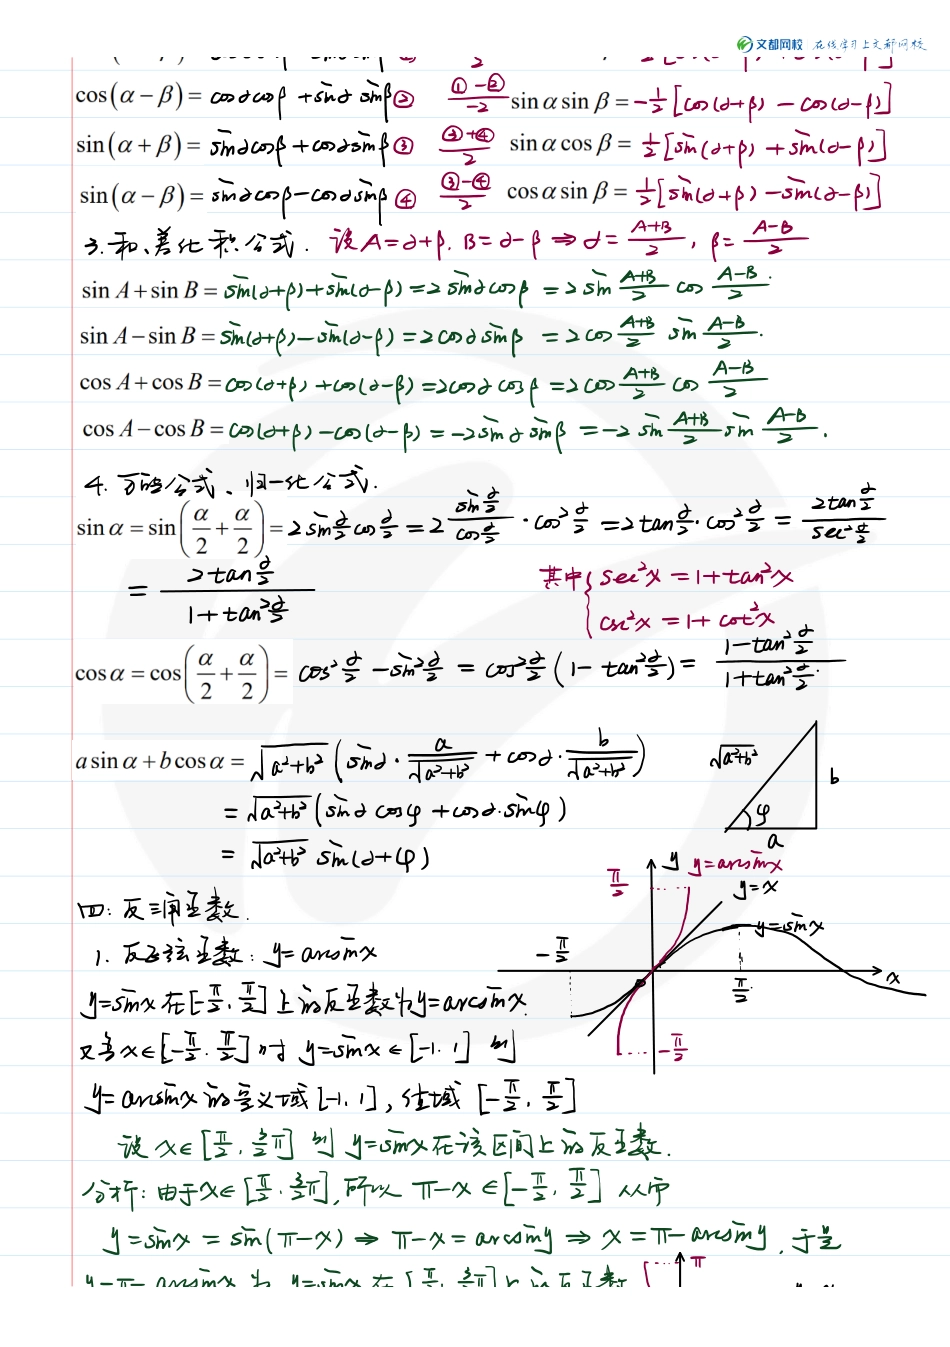 文都网校 在线学习上文都网校
cos(α−β) = cosαcosβ + sinα sinβ ② (①−②)/−2 sinα sinβ = −1/2[cos(α+β) − cos(α−β)]
sin(α+β) = sinαcosβ + cosαsinβ ③ (③+④)/2 sinα cosβ = 1/2[sin(α+β) + sin(α−β)]
sin(α−β) = sinαcosβ − cosαsinβ ④ (③−④)/2 cosα sinβ = 1/2[sin(α+β) − sin(α−β)]
3. 和、差化积公式. 设A=α+β. B=α−β ⇒ α= (A+B)/2, β= (A−B)/2
sin A + sin B = sin(α+β)+sin(α−β) = 2 sinα cosβ = 2 sin (A+B)/2 cos (A−B)/2.
sin A − sin B = sin(α+β)−sin(α−β) = 2cosα sinβ = 2cos (A+B)/2 sin (A−B)/2.
cos A + cos B = cos(α+β)+cos(α−β) = 2cosα cosβ = 2cos (A+B)/2 cos (A−B)/2
cos A − cos B = cos(α+β)−cos(α−β) = −2sinα sinβ = −2 sin (A+B)/2 sin (A−B)/2.
4. 万能公式、归一化公式.
sinα = sin(α/2 + α/2) = 2 sin α/2 cos α/2 = 2 (sin α/2)/(cos α/2) · cos² α/2 = 2tan α/2 · cos² α/2 = (2tan α/2)/(sec² α/2)
= (2tan α/2)/(1+tan² α/2) 其中{ sec²x = 1+tan²x
csc²x = 1+cot²x
cosα = cos(α/2 + α/2) = cos² α/2 − sin² α/2 = cos² α/2 (1− tan² α/2) = (1−tan² α/2)/(1+tan² α/2)
a sinα + b cosα = √(a²+b²) (sinα · a/√(a²+b²) + cosα · b/√(a²+b²)) √(a²+b²) b
= √(a²+b²) (sinα cosφ + cosα·sinφ) φ
a
= √(a²+b²) sin(α+φ)
y y=arcsinx
π/2 y=x
四: 反三角函数. y=sinx
1. 反正弦函数: y= arcsinx −π/2 π/2 x
y=sinx在[−π/2, π/2]上的反函数为y=arcsinx.
又当x∈[−π/2, π/2]时 y=sinx∈[−1, 1] 则 −π/2
y= arcsinx的定义域[−1, 1], 值域 [−π/2, π/2]
设 x∈[π/2, 3/2π] 则 y=sinx在该区间上的反函数.
分析: 由于x∈[π/2, 3/2π], 所以 π−x ∈[−π/2, π/2] 从而
y=sinx = sin(π−x) ⇒ π−x = arcsiny ⇒ x=π−arcsiny, 于是
y=π− arcsinx 为 y=sinx 在 [π/2, 3/2π]上的反函数 π